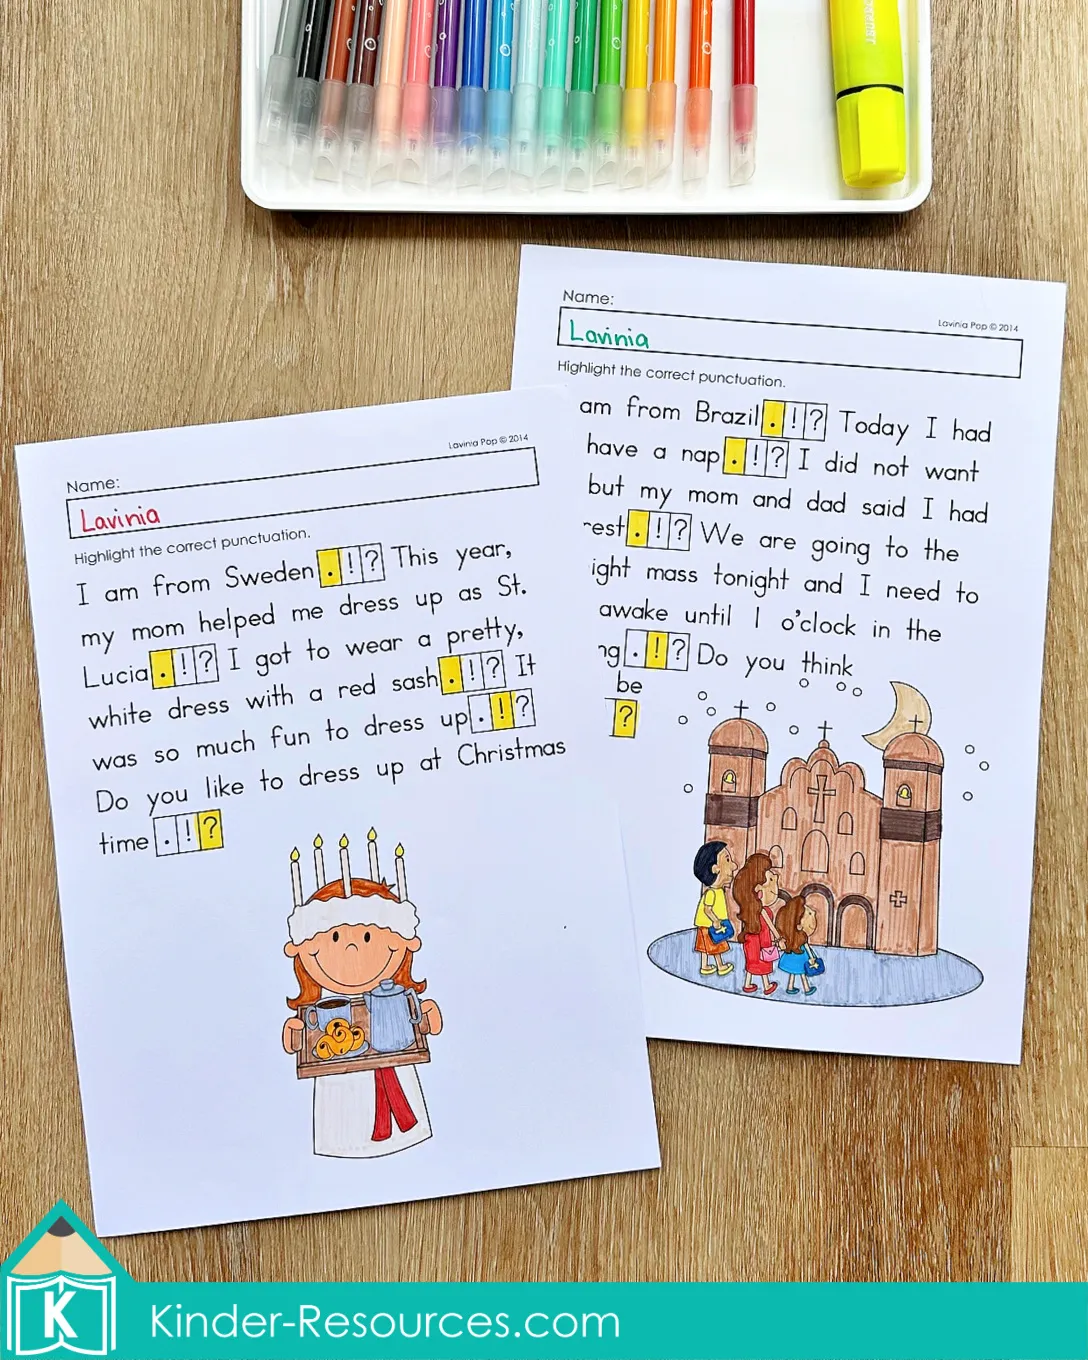 Name:
Lavinia Pop © 2014
Lavinia
Highlight the correct punctuation.
I am from Sweden . ! ? This year,
my mom helped me dress up as St.
Lucia . ! ? I got to wear a pretty,
white dress with a red sash . ! ? It
was so much fun to dress up . ! ?
Do you like to dress up at Christmas
time . ! ?
Name:
Lavinia Pop © 2014
Lavinia
Highlight the correct punctuation.
am from Brazil . ! ? Today I had
have a nap . ! ? I did not want
but my mom and dad said I had
rest . ! ? We are going to the
ight mass tonight and I need to
awake until 1 o'clock in the
ng . ! ? Do you think
be
?
K
Kinder-Resources.com